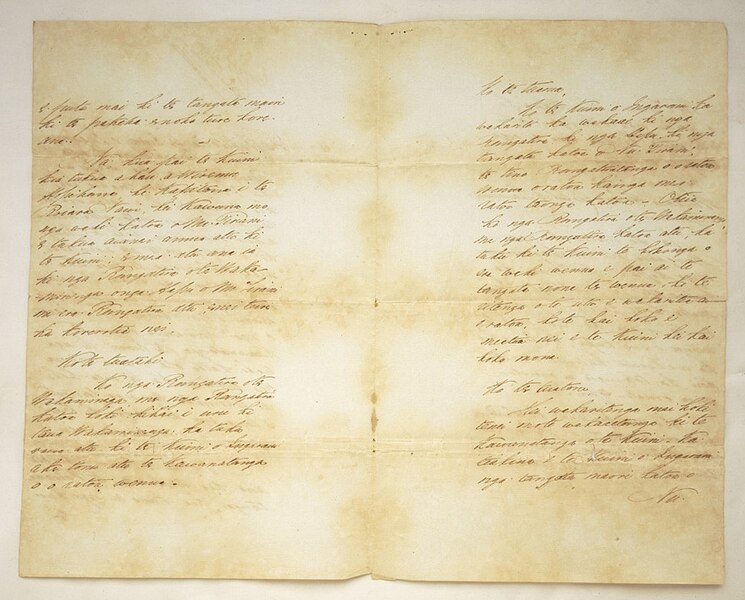 e puta mai ki te tangata maori
ki te pakeha e noho ture kore
ana.
Na, kua pai te kuini
kia tukua a hau a Wiremu
Hopihana he Kapitana i te
Roiara Nawi, he Kawana mo
nga wahi katoa o Nu Tirani
e tukua aianei amua atu ki
te kuini; e mea atu ana ia
ki nga Rangatira o te Waka-
minenga o nga Hapu o Nu Tirani
me era Rangatira atu enei ture
ka korerotia nei.
Ko te tuatahi
Ko nga Rangatira o te
Wakaminenga me nga Rangatira
katoa hoki kihai i uru ki
taua Wakaminenga ka tuku
rawa atu ki te kuini o Ingarani
ake tonu atu te kawanatanga
o o ratou wenua.
Ko te tuarua,
Ko te kuini o Ingarani ka
wakarite ka wakaae ki nga
Rangatira ki nga Hapu, ki nga
tangata katoa o Nu Tirani,
te tino Rangatiratanga o o ratou
wenua o ratou kainga me o
ratou taonga katoa - Otiia
ko nga Rangatira o te Wakaminenga
me nga Rangatira katoa atu ka
tuku ki te kuini te hokonga o
era wahi wenua e pai ai te
tangata nona te wenua, ki te
ritenga o te utu e wakaritea ai
e ratou, ko te kai hoko e
meatia nei e te kuini hei kai
hoko mona.
Ko te tuatoru,
Hei wakaritenga mai hoki
tenei mo te wakaaetanga ki te
kawanatanga o te kuini. Ka
tiakina e te kuini o Ingarani
nga tangata maori katoa o
Nu